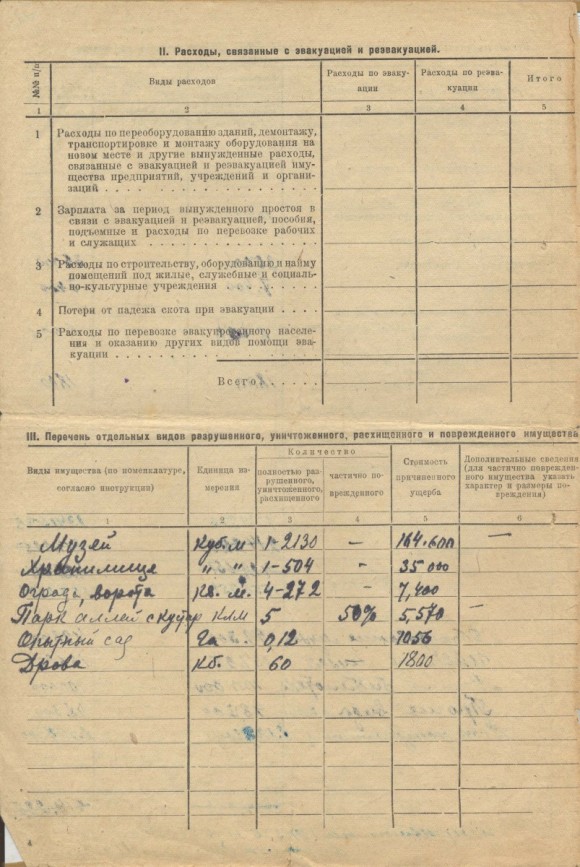 II. Расходы, связанные с эвакуацией и реэвакуацией.
№№ п/п
Виды расходов
Расходы по эваку-
ации
Расходы по реэва-
куации
Итого
1 2 3 4 5
1 Расходы по переоборудованию зданий, демонтажу,
транспортировке и монтажу оборудования на
новом месте и другие вынужденные расходы,
связанные с эвакуацией и реэвакуацией иму-
щества предприятий, учреждений и органи-
заций . . . .
2 Зарплата за период вынужденного простоя в
связи с эвакуацией и реэвакуацией, пособия,
подъемные и расходы по перевозке рабочих
и служащих . . . .
3 Расходы по строительству, оборудованию и найму
помещений под жилые, служебные и социаль-
но-культурные учреждения . . . .
4 Потери от падежа скота при эвакуации . . . .
5 Расходы по перевозке эвакуированного населе-
ния и оказанию других видов помощи эва-
куации . . . .
Всего . . . .
III. Перечень отдельных видов разрушенного, уничтоженного, расхищенного и поврежденного имущества
Виды имущества (по номенклатуре,
согласно инструкции)
Единица из-
мерения
Количество
полностью раз-
рушенного,
уничтоженного,
расхищенного
частично по-
врежденного
Стоимость
причиненного
ущерба
Дополнительные сведения
(для частично поврежден-
ного имущества указать
характер и размеры по-
вреждения)
1 2 3 4 5 6
Музей куб.м 1-2130 — 164.600 —
Хранилище " " 1-504 - 35 000
Ограда, ворота кв. м. 4-272 - 7,400
Парк аллей 5 50% 5,570 —
Опытный сад га 0,12 1056
Дрова кб. 60 1800